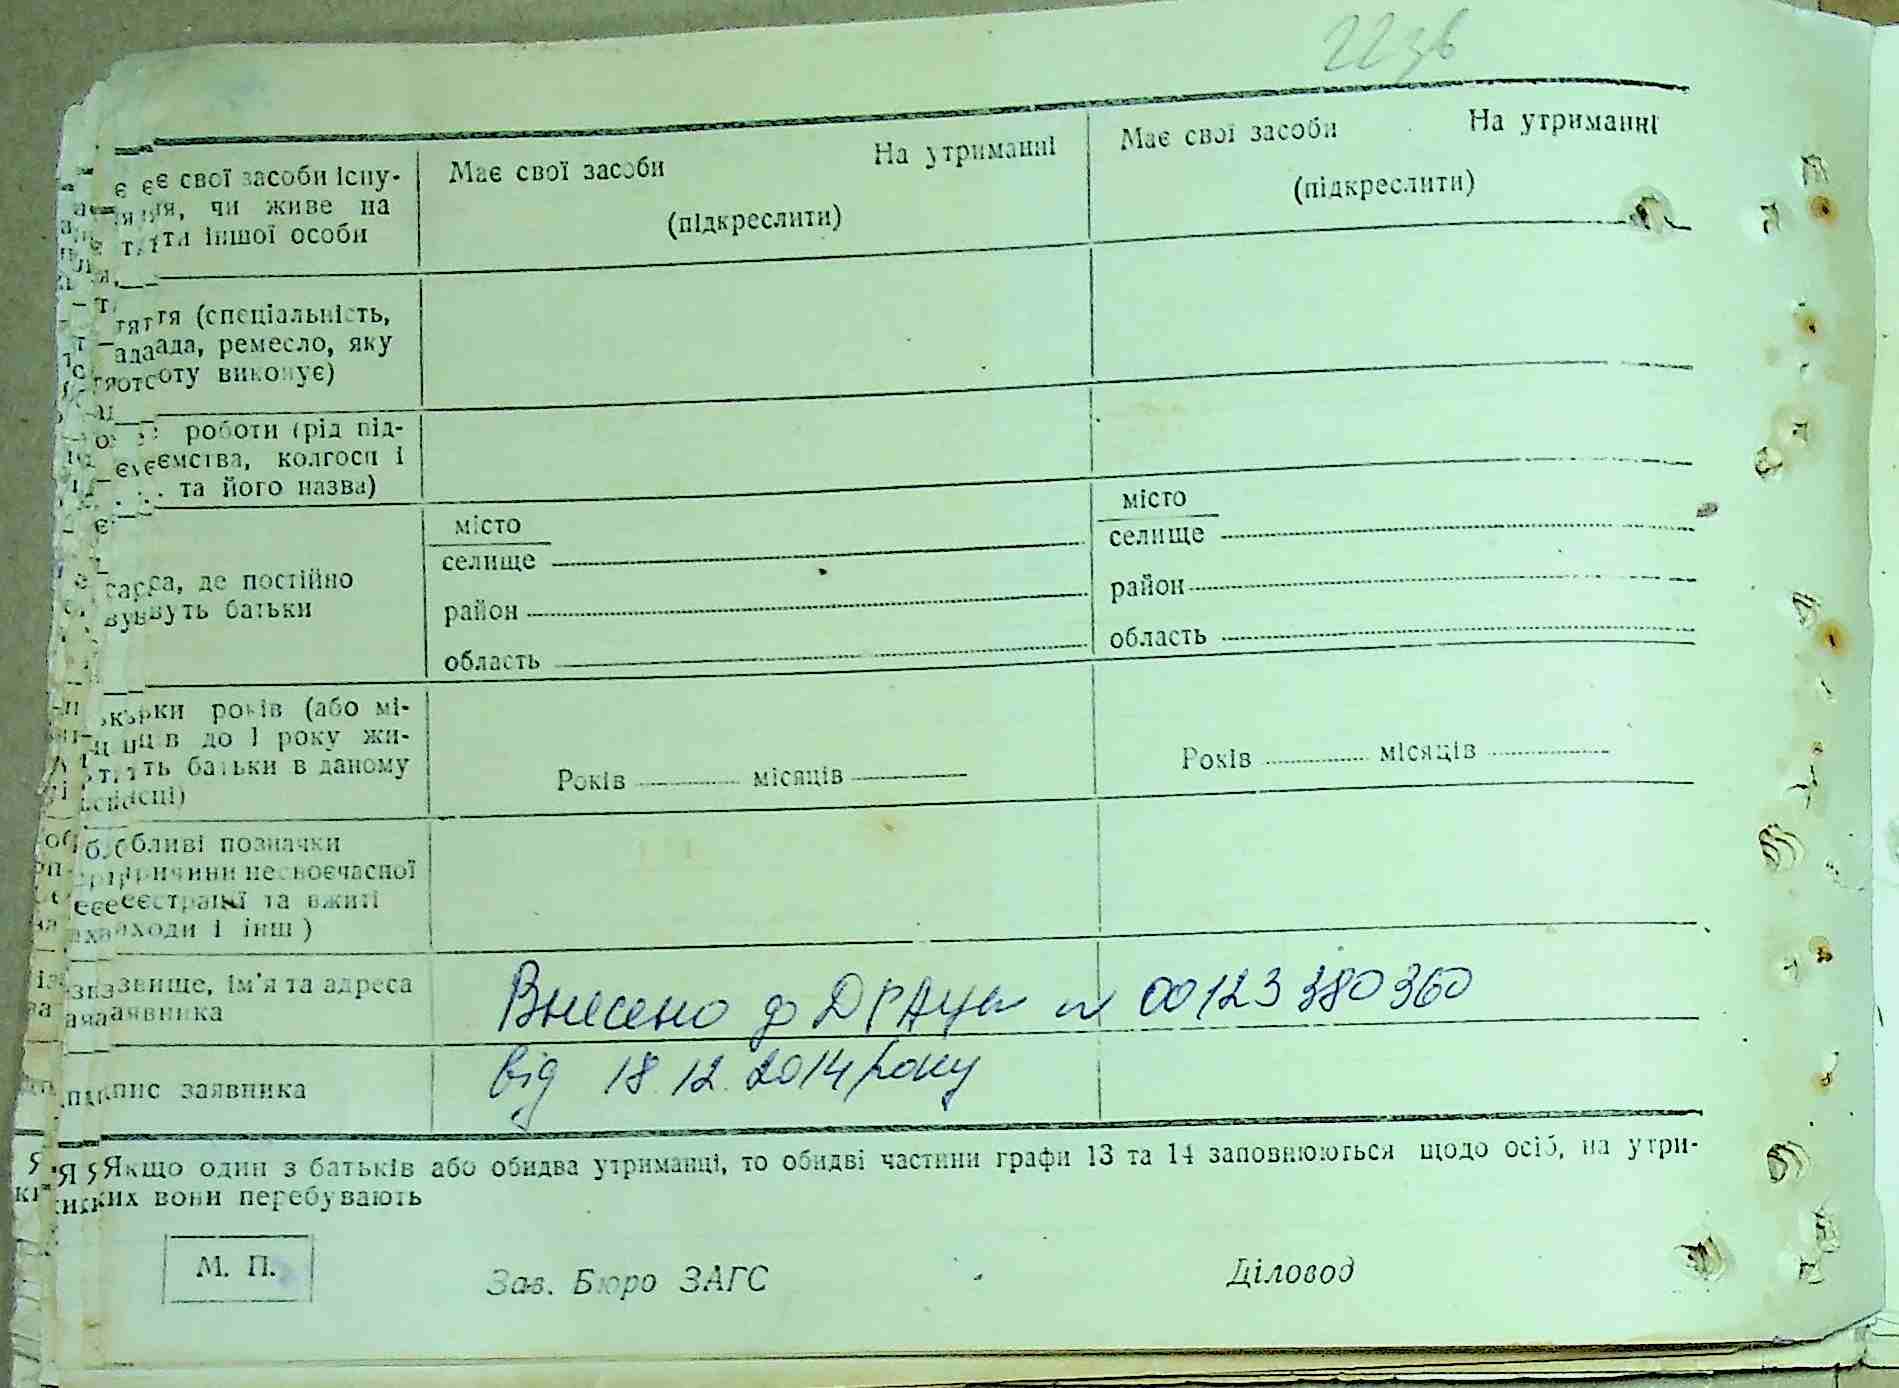 22зв
є свої засоби існу-
чи живе на
іншої особи
Має свої засоби На утриманні
(підкреслити)
Має свої засоби На утриманні
(підкреслити)
(спеціальність,
ремесло, яку
виконує)
роботи (рід під-
колгосп і
та його назва)
де постійно
батьки
місто
селище
район
область
місто
селище
район
область
років (або мі-
в до 1 року жи-
батьки в даному
Років місяців
Років місяців
позначки
несвоєчасної
та вжиті
і інш)
ім'я та адреса
заявника
Внесено до ДРАЦС № 00123380360
від 18.12.2014 року
заявника
Якщо один з батьків або обидва утриманці, то обидві частини графи 13 та 14 заповнюються щодо осіб, на утри-
яких вони перебувають
М. П.
Зав. Бюро ЗАГС
Діловод